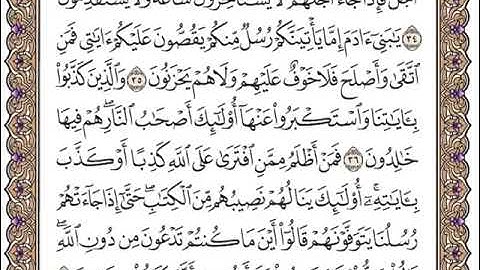 أَجَلٌ فَإِذَا جَآءَ أَجَلُهُمْ لَا يَسْتَأْخِرُونَ سَاعَةً وَلَا يَسْتَقْدِمُونَ
٣٤ يَٰبَنِىٓ ءَادَمَ إِمَّا يَأْتِيَنَّكُمْ رُسُلٌ مِّنكُمْ يَقُصُّونَ عَلَيْكُمْ ءَايَٰتِى فَمَنِ
ٱتَّقَىٰ وَأَصْلَحَ فَلَا خَوْفٌ عَلَيْهِمْ وَلَا هُمْ يَحْزَنُونَ ٣٥ وَٱلَّذِينَ كَذَّبُوا۟
بِـَٔايَٰتِنَا وَٱسْتَكْبَرُوا۟ عَنْهَآ أُو۟لَٰٓئِكَ أَصْحَٰبُ ٱلنَّارِ هُمْ فِيهَا
خَٰلِدُونَ ٣٦ فَمَنْ أَظْلَمُ مِمَّنِ ٱفْتَرَىٰ عَلَى ٱللَّهِ كَذِبًا أَوْ كَذَّبَ
بِـَٔايَٰتِهِۦٓ أُو۟لَٰٓئِكَ يَنَالُهُمْ نَصِيبُهُم مِّنَ ٱلْكِتَٰبِ حَتَّىٰٓ إِذَا جَآءَتْهُمْ
رُسُلُنَا يَتَوَفَّوْنَهُمْ قَالُوٓا۟ أَيْنَ مَا كُنتُمْ تَدْعُونَ مِن دُونِ ٱللَّهِ